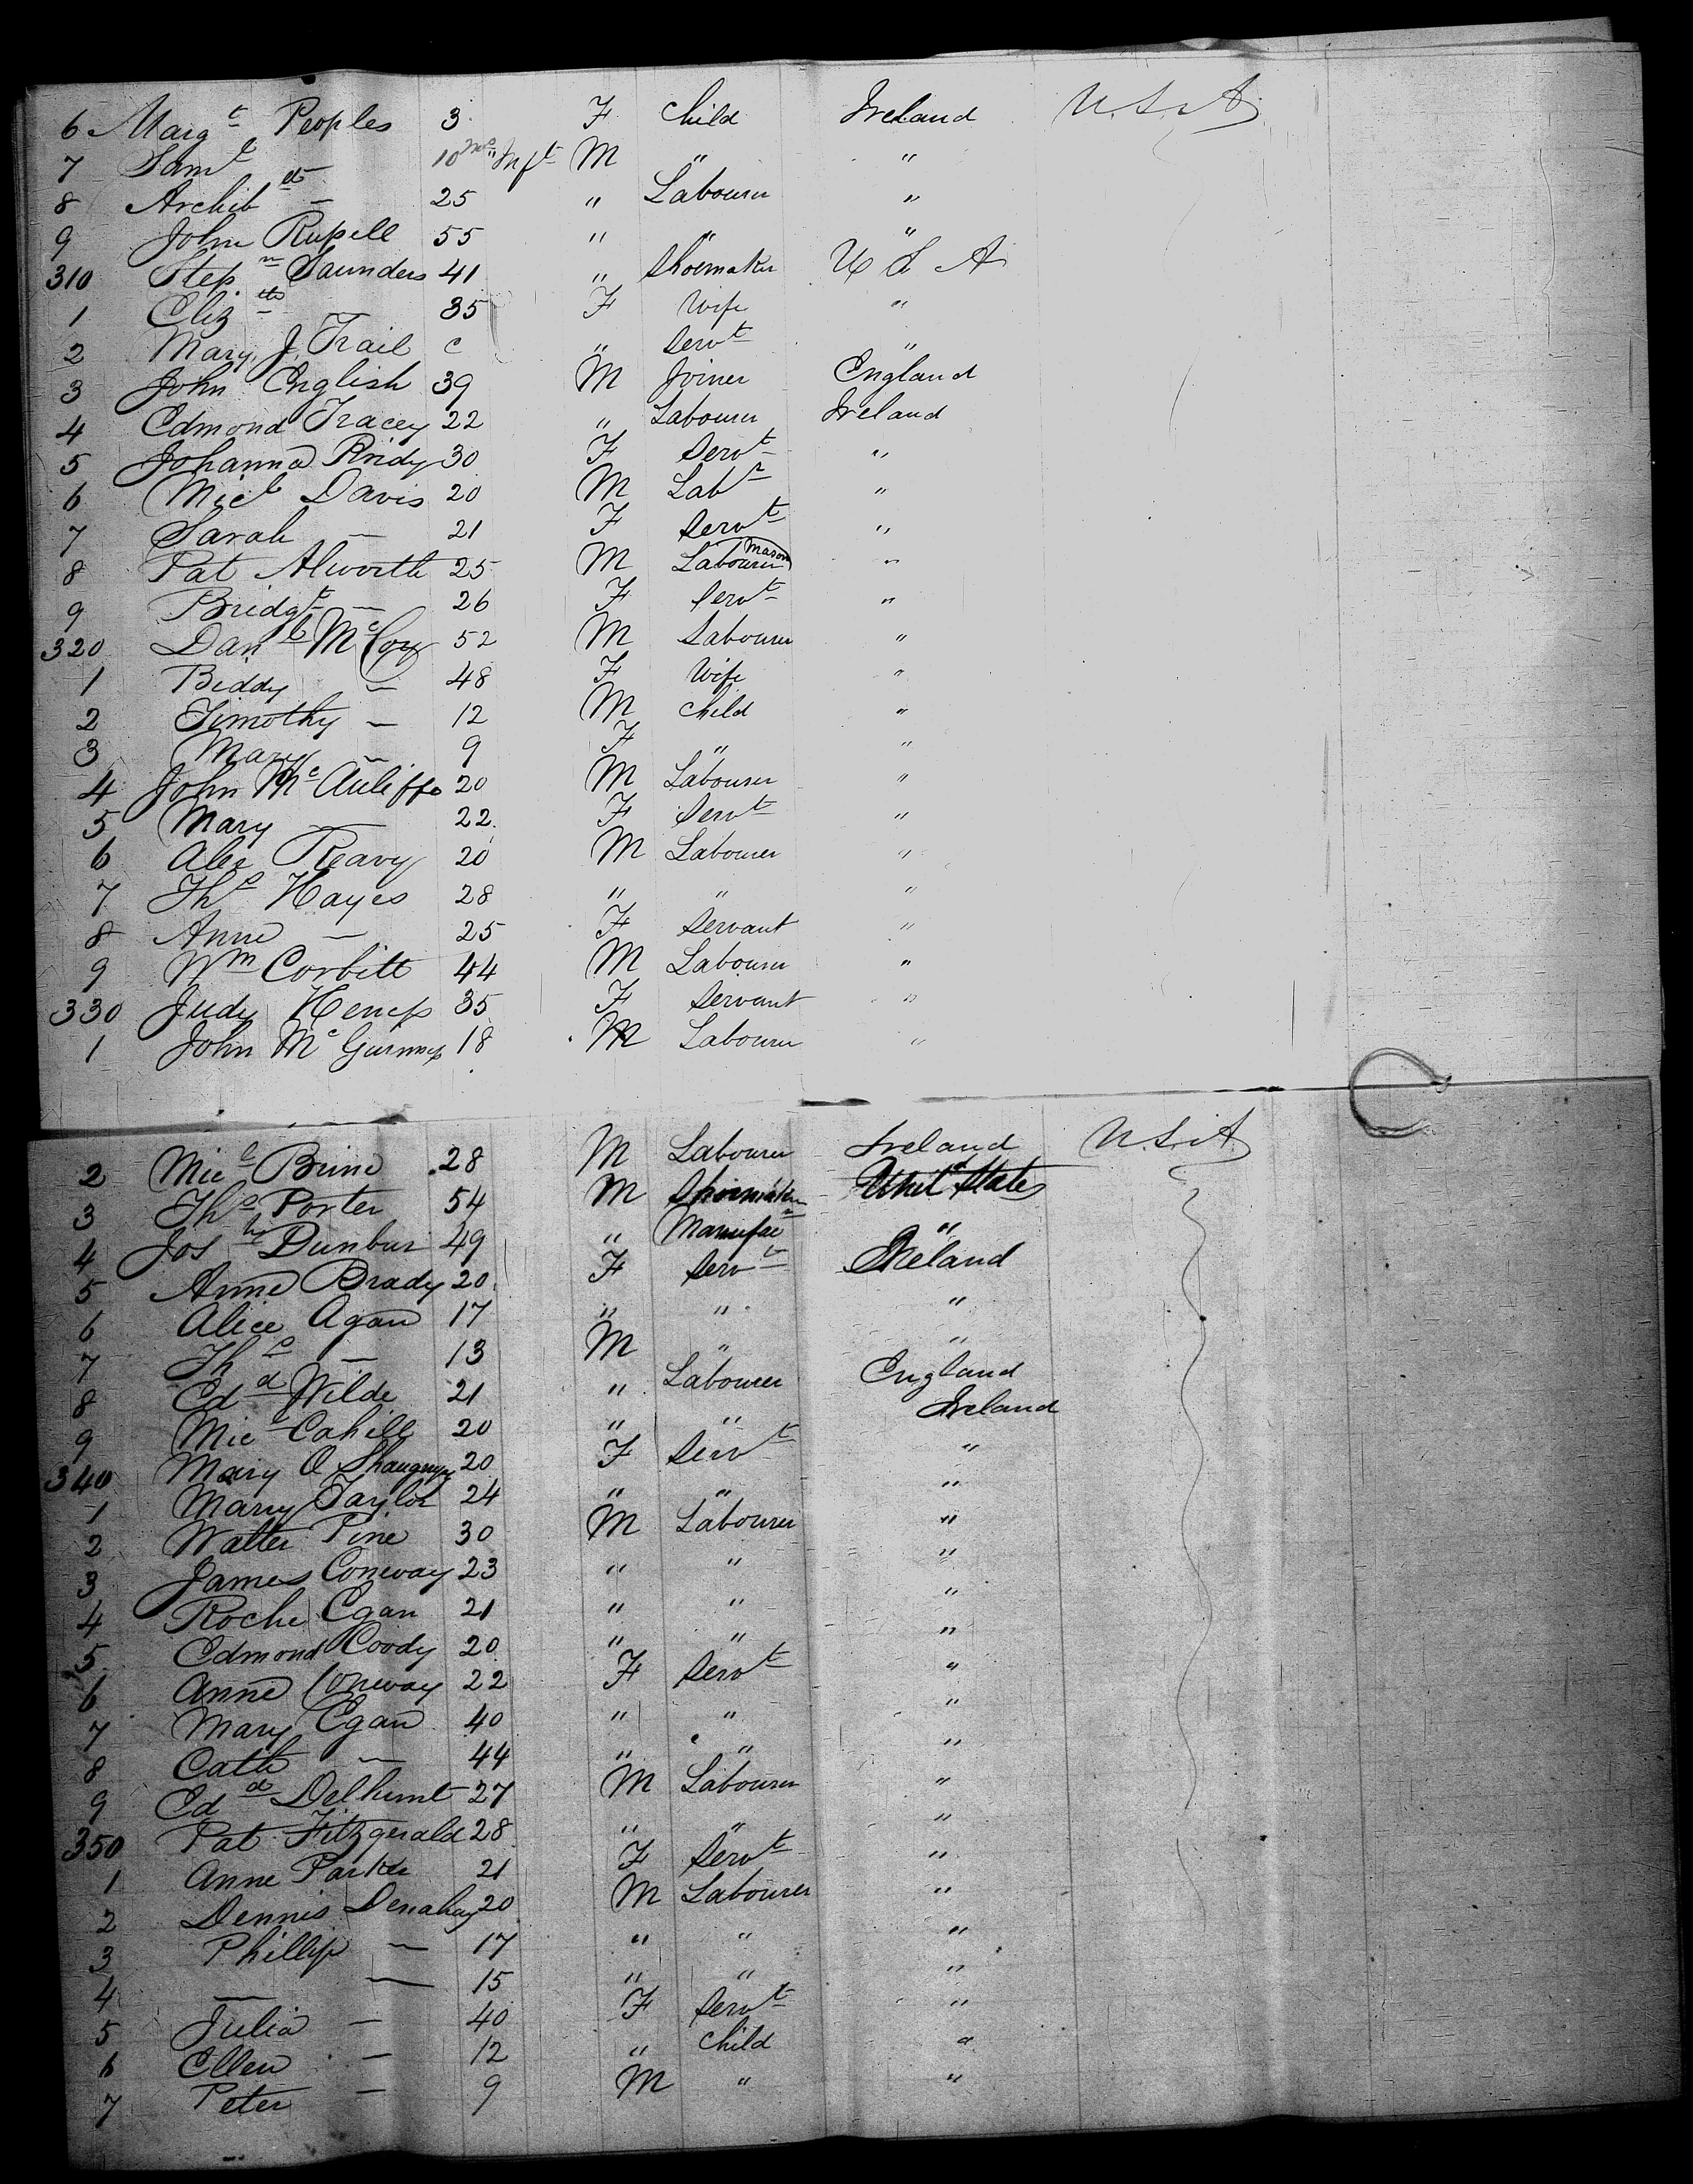 6 Margt Peoples 3 F Child Ireland U.S.A
7 Saml 10 mos Inft M " "
8 Archibd — 25 " Labourer "
9 John Rusell 55 " " "
310 Stepn Saunders 41 " Shoemaker U S A
1 Elizth — 35 F Wife "
2 Mary J. Trail " Servt "
3 John English 39 M Joiner England
4 Edmond Tracey 22 " Labourer Ireland
5 Johanna 30 F Servt "
6 Micl Davis 20 M Labr "
7 Sarah — 21 F Servt "
8 Pat Alworth 25 M Labourer Mason "
9 Bridgt — 26 F Servt "
320 Danl McCoy 52 M Labourer "
1 Biddy — 48 F Wife "
2 Timothy — 12 M Child "
3 Mary — 9 F " "
4 John McAuliffe 20 M Labourer "
5 Mary — 22 F Servt "
6 Alex Reavy 20 M Labourer "
7 Ths Hayes 28 " " "
8 Anne — 25 F Servant "
9 Wm Corbitt 44 M Labourer "
330 Judy 35 F Servant "
1 John Mc 18 M Labourer "
2 Micl Brine 28 M Labourer Ireland U.S.A
3 Ths Porter 54 M Shoemaker Unitd States
4 Josh Dunbar 49 " Manufacr "
5 Anne Brady 20 F Servt Ireland
6 Alice Agan 17 " " "
7 Ths — 13 M " "
8 Edd Wilde 21 " Labourer England
9 Micl Cahill 20 " " Ireland
340 Mary O Shaugnsy 20 F Servt "
1 Mary Taylor 24 " " "
2 Walter Pine 30 M Labourer "
3 James Conway 23 " " "
4 Roche Egan 21 " " "
5 Edmond Coody 20 " " "
6 Anne Conway 22 F Servt "
7 Mary Egan 40 " " "
8 Cath — 44 " " "
9 Edd Delhunt 27 M Labourer "
350 Pat Fitzgerald 28 " " "
1 Anne Parker 21 F Servt "
2 Dennis Denahay 20 M Labourer "
3 Phillip — 17 " " "
4 — — 15 " " "
5 Julia — 40 F Servt "
6 Ellen — 12 " Child "
7 Peter — 9 M " "